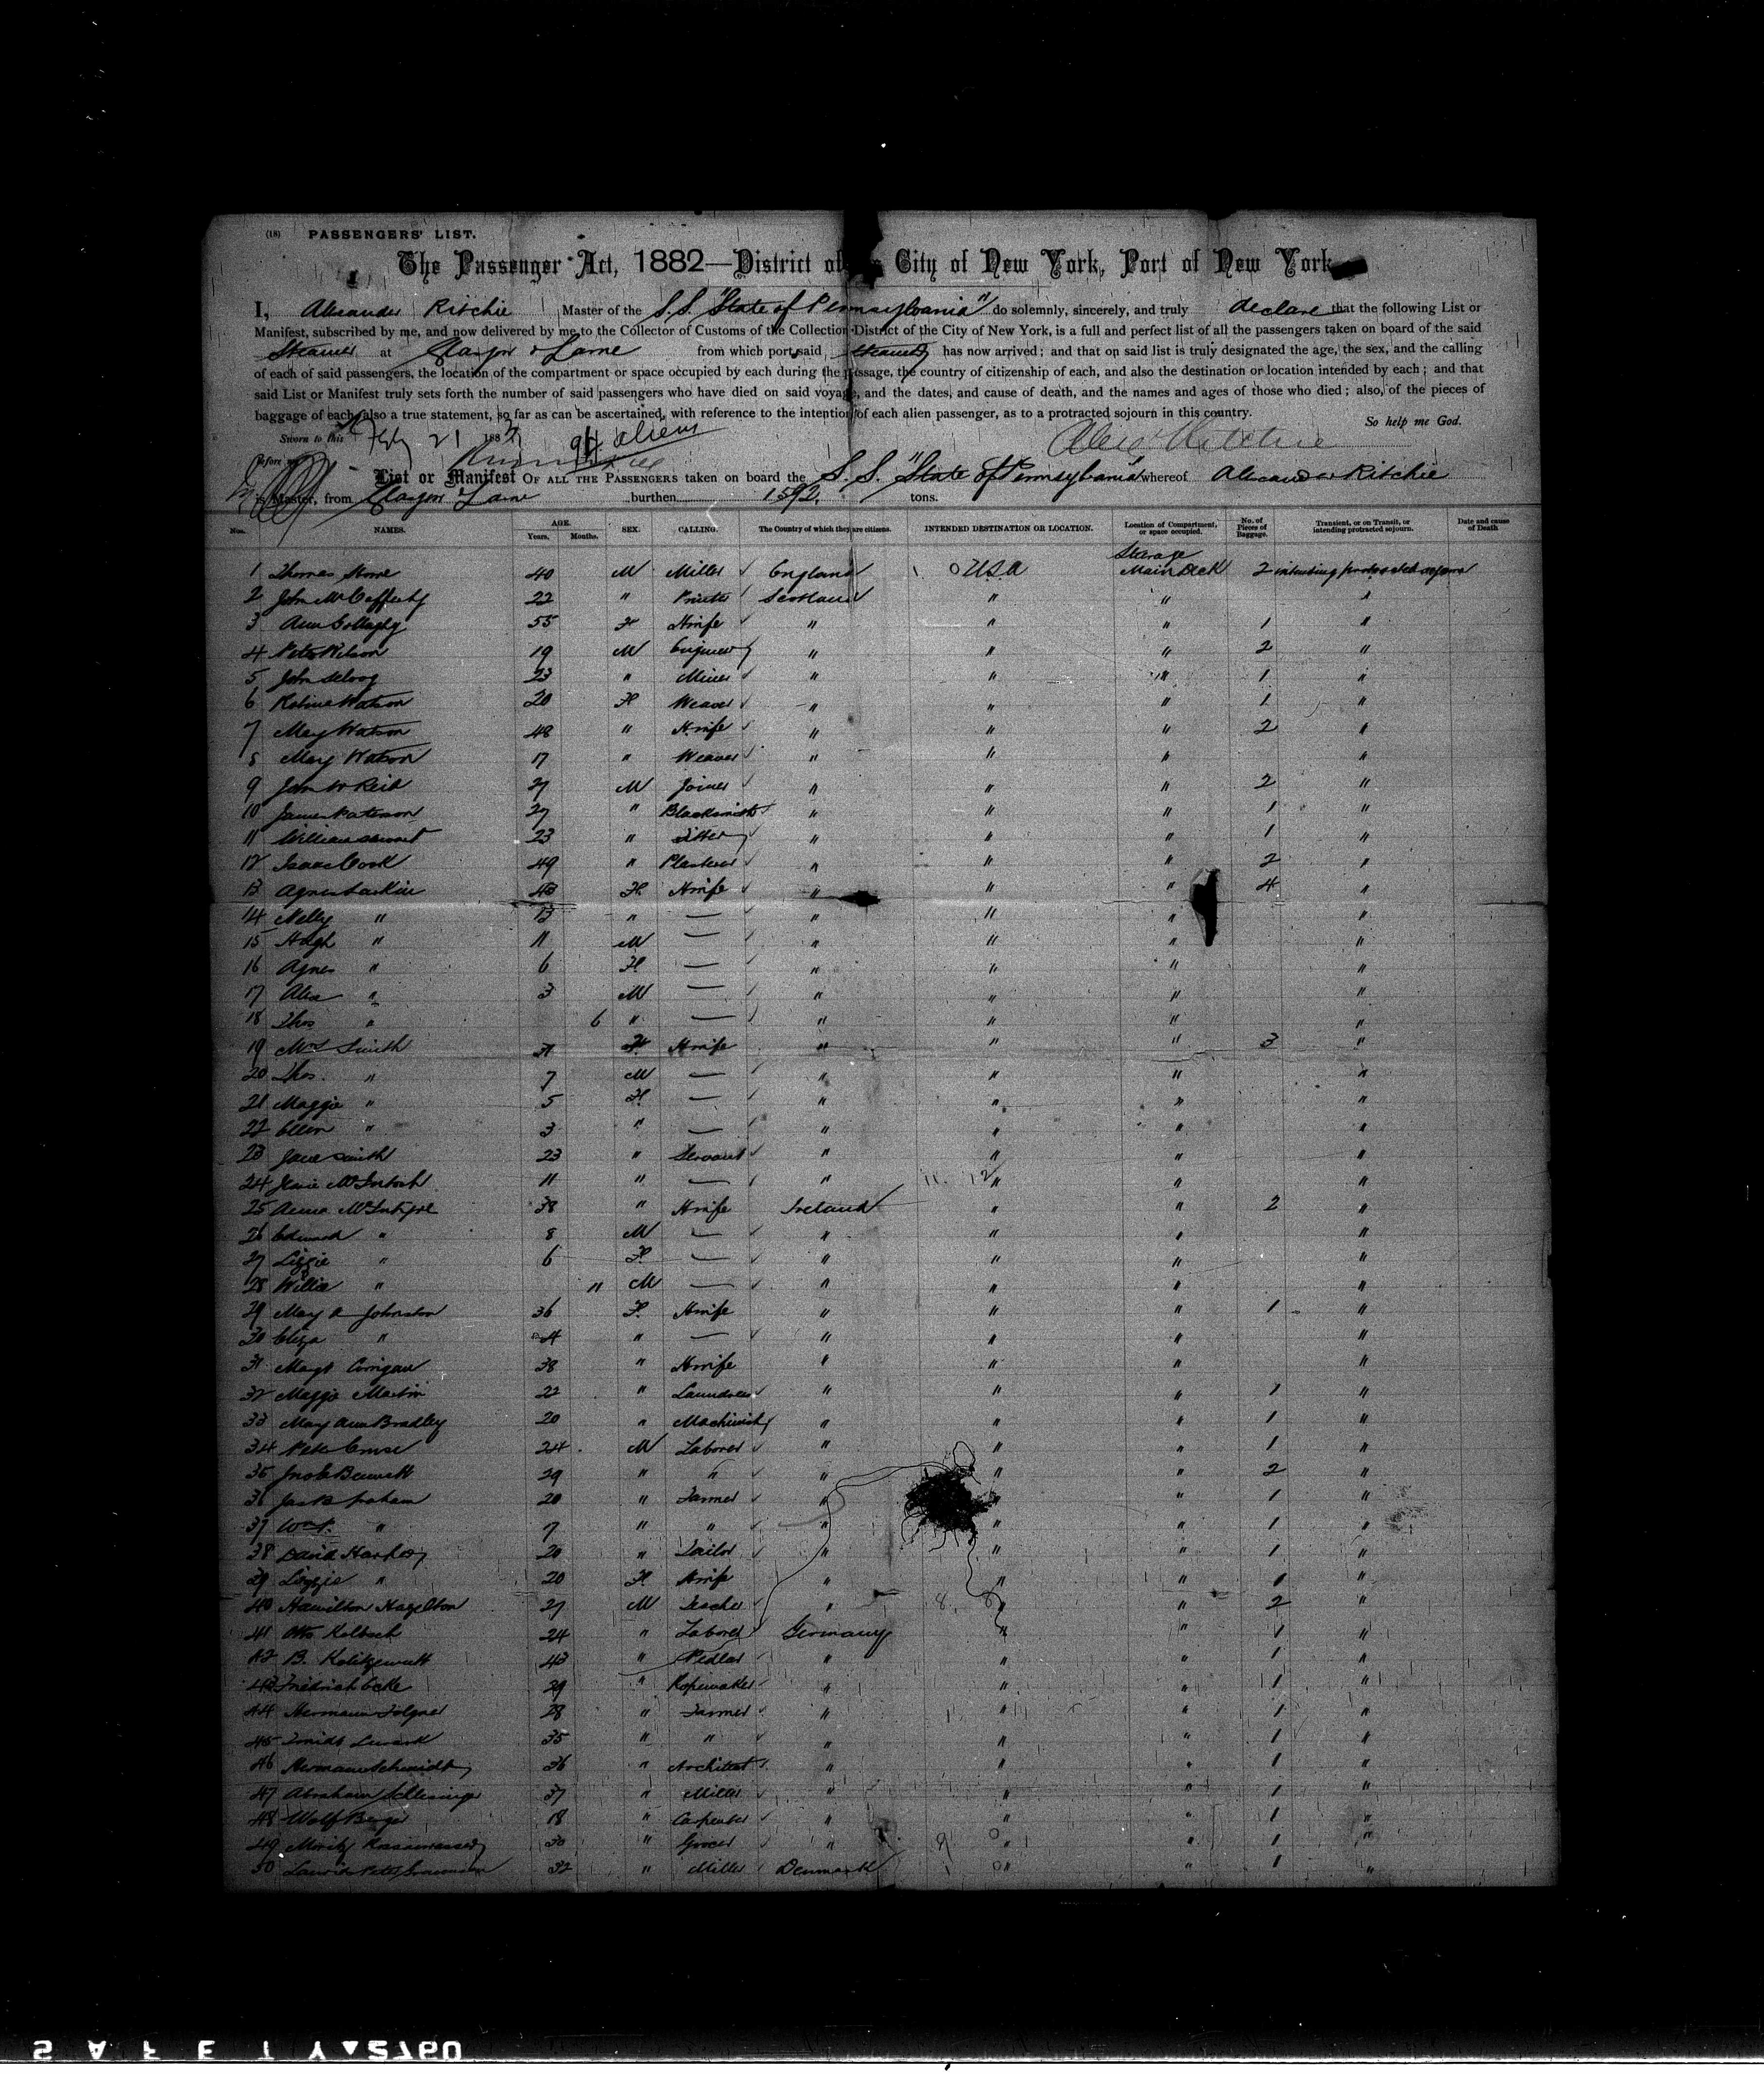 (18) PASSENGERS' LIST.
The Passenger Act, 1882—District of City of New York, Port of New York
I, Alexander Ritchie Master of the S.S. "State of Pennsylvania" do solemnly, sincerely, and truly declare that the following List or
Manifest, subscribed by me, and now delivered by me to the Collector of Customs of the Collection District of the City of New York, is a full and perfect list of all the passengers taken on board of the said
Steamer at Glasgow & Larne from which port said Steamer has now arrived; and that on said list is truly designated the age, the sex, and the calling
of each of said passengers, the location of the compartment or space occupied by each during the passage, the country of citizenship of each, and also the destination or location intended by each; and that
said List or Manifest truly sets forth the number of said passengers who have died on said voyage, and the dates, and cause of death, and the names and ages of those who died; also, of the pieces of
baggage of each, also a true statement, so far as can be ascertained, with reference to the intention of each alien passenger, as to a protracted sojourn in this country. So help me God.
Sworn to this 21 188 94 aliens Alexr Ritchie
Before me
List or Manifest OF ALL THE PASSENGERS taken on board the S.S. "State of Pennsylvania" whereof Alexander Ritchie
is Master, from Glasgow & Larne burthen 1592 tons.
Nos. NAMES. AGE. Years. Months. SEX. CALLING. The Country of which they are citizens. INTENDED DESTINATION OR LOCATION. Location of Compartment, or space occupied. No. of Pieces of Baggage. Transient, or on Transit, or intending protracted sojourn. Date and cause of Death
Steerage
1 Thomas 40 M Miller England USA Main Deck 2 intending protracted sojourn
2 John McCafferty 22 " Printer Scotland " " "
3 Ann 55 F H wife " " " 1 "
4 Peter Wilson 19 M Engineer " " " 2 "
5 John 23 " Miner " " " 1 "
6 Watson 20 F Weaver " " " 1 "
7 Mary Watson 48 " H wife " " " 2 "
8 Mary Watson 17 " Weaver " " " "
9 John W Reid 27 M Joiner " " " 2 "
10 James Paterson 27 " Blacksmith " " " 1 "
11 William 23 " Fitter " " " 1 "
12 Isaac Cook 49 " Plasterer " " " 2 "
13 Agnes 43 F H wife " " " 4 "
14 Nelly " 13 " — " " " "
15 Hugh " 11 M — " " " "
16 Agnes " 6 F — " " " "
17 Alex " 3 M — " " " "
18 Thos " 6 " — " " " "
19 Mrs Smith 31 F H wife " " " 3 "
20 Thos. " 7 M — " " " "
21 Maggie " 5 F — " " " "
22 Ellen " 3 " — " " " "
23 Jane Smith 23 " Servant " " " "
24 McIntosh 11 " — " " " "
25 Anna McIntyre 38 " H wife Ireland " " 2 "
26 Edward " 8 M — " " " "
27 Lizzie " 6 F — " " " "
28 Willie " 11 M — " " " "
29 Mary A Johnston 36 F H wife " " " 1 "
30 Eliza " 4 " — " " " "
31 Margt Corrigan 38 " H wife " " " "
32 Maggie Martin 22 " Laundress " " " 1 "
33 Mary Ann Bradley 20 " Machinist " " " 1 "
34 Peter 24 M Laborer " " " 1 "
35 Bennett 29 " " " " " 2 "
36 Graham 20 " Farmer " " " 1 "
37 " 7 " " " " " 1 "
38 David 20 " Tailor " " " 1 "
39 Lizzie " 20 F H wife " " " 1 "
40 Hamilton Hazelton 27 M Teacher " " " 2 "
41 Otto 24 " Laborer Germany " " 1 "
42 B. 43 " Pedlar " " " 1 "
43 Friedrich 29 " Ropemaker " " " 1 "
44 Hermann 28 " Farmer " " " 1 "
45 35 " " " " " 1 "
46 Hermann Schmidt 36 " Architect " " " 1 "
47 Abraham Schlesinger 37 " Miller " " " 1 "
48 Wolf Berger 18 " Carpenter " " " 1 "
49 Moritz 30 " Grocer " " " 1 "
50 32 " Miller Denmark " " 1 "
SAFETY▲5760